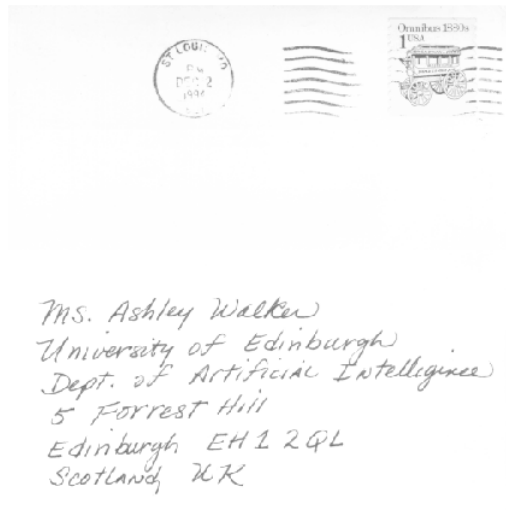 ST LOUIS MO
PM
DEC 2
1994
Omnibus 1880s
1 USA
Ms. Ashley Walker
University of Edinburgh
Dept. of Artificial Intelligince
5 Forrest Hill
Edinburgh EH1 2QL
Scotland UK